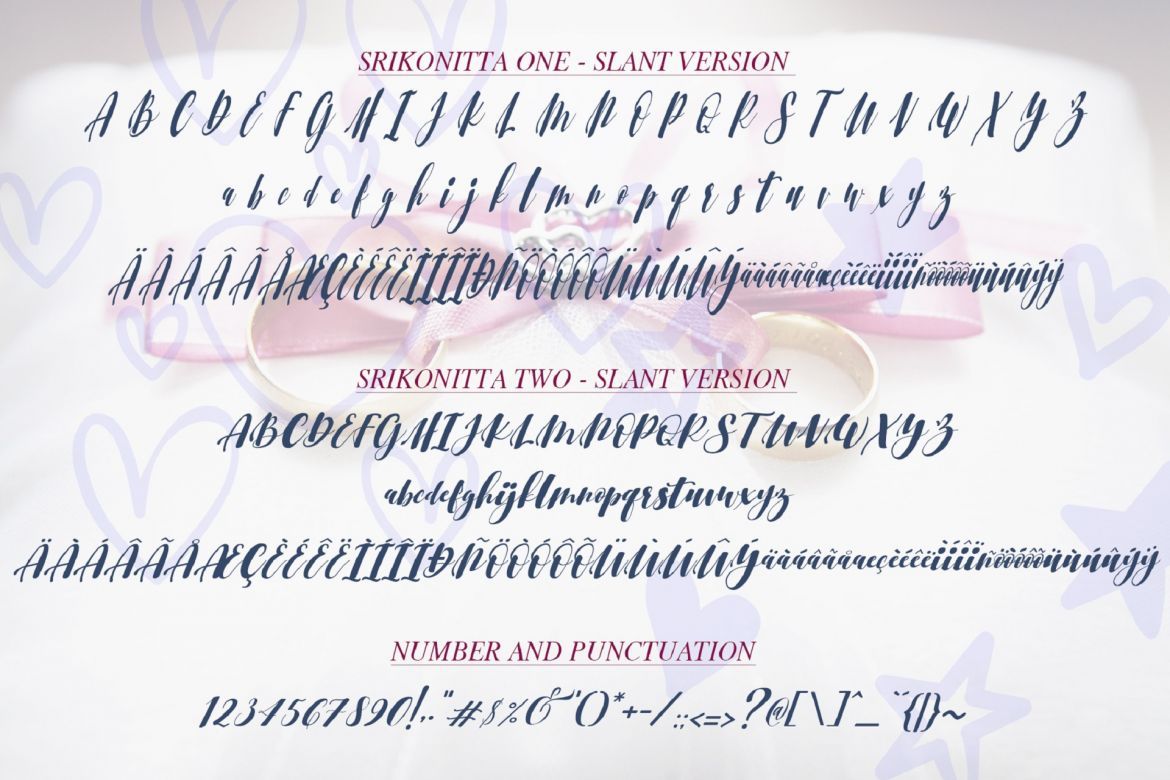 SRIKONITTA ONE - SLANT VERSION
A B C D E F G H I J K L M N O P Q R S T U V W X Y Z
a b c d e f g h i j k l m n o p q r s t u v w x y z
ÄÀÁÂÃÅÆÇÈÉÊËÌÍÎÏÐÑÖÒÓÔÕÜÙÚÛÝäàáâãåæçèéêëìíîïñöòóôõüùúûýÿ
SRIKONITTA TWO - SLANT VERSION
ABCDEFGHIJKLMNOPQRSTUVWXYZ
abcdefghijklmnopqrstuvwxyz
ÄÀÁÂÃÅÆÇÈÉÊËÌÍÎÏÐÑÖÒÓÔÕÜÙÚÛÝäàáâãåæçèéêëìíîïñöòóôõüùúûýÿ
NUMBER AND PUNCTUATION
1234567890!,."#$%&'()*+-/:;<=>?@[\]^_`{|}~